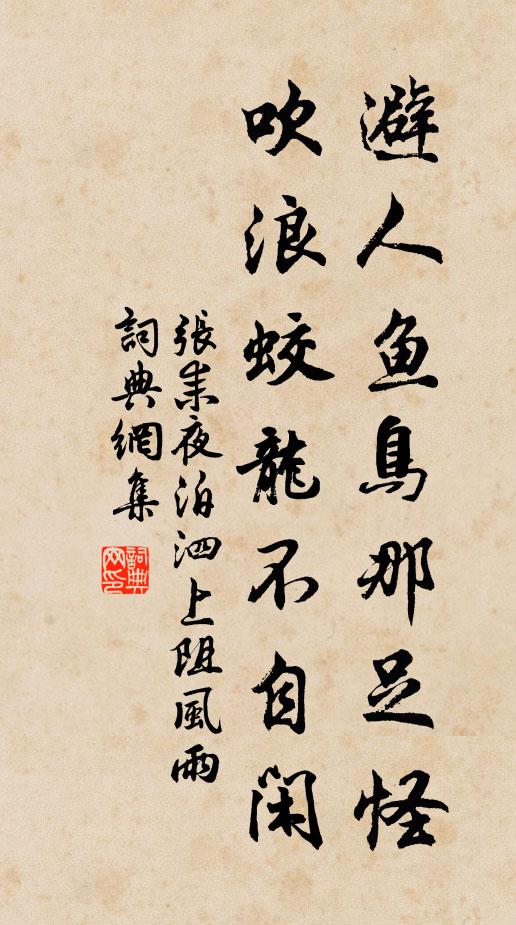 避人魚鳥那足怪
吹浪蛟龍不自閑
張耒夜泊泗上阻風雨
詞典網集
詞典
网印